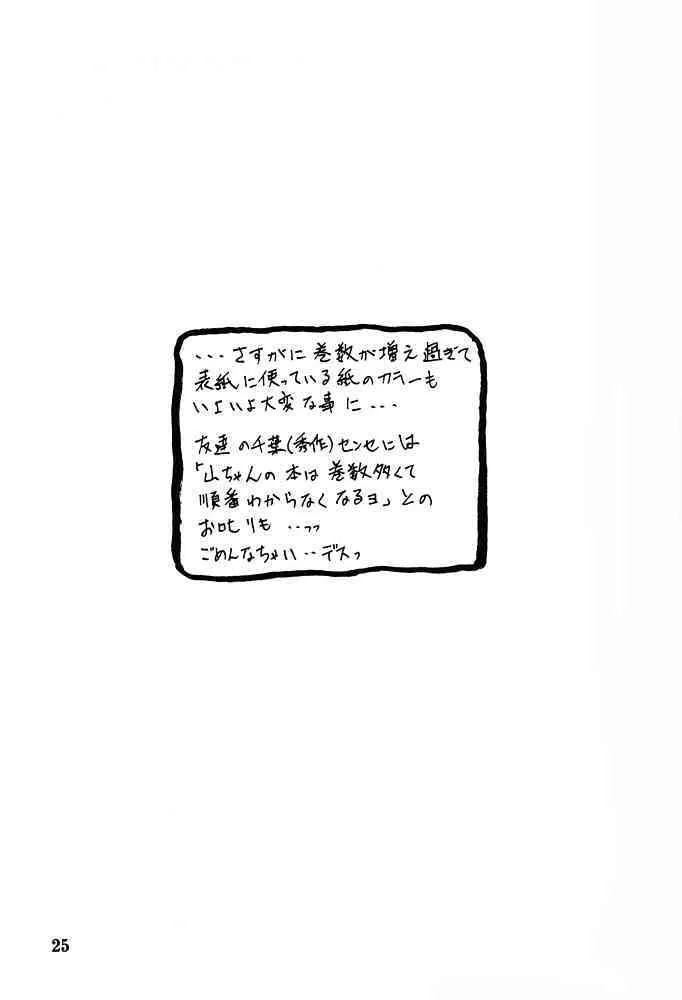 ...さすがに巻数が増え過ぎて
表紙に使っている紙のカラーも
いよいよ大変な事に...
友達の千葉(秀作)センセには
「山ちゃんの本は巻数多くて
順番わからなくなるヨ」との
お叱りも ..ッッ
ごめんなちゃい..デスっ
25